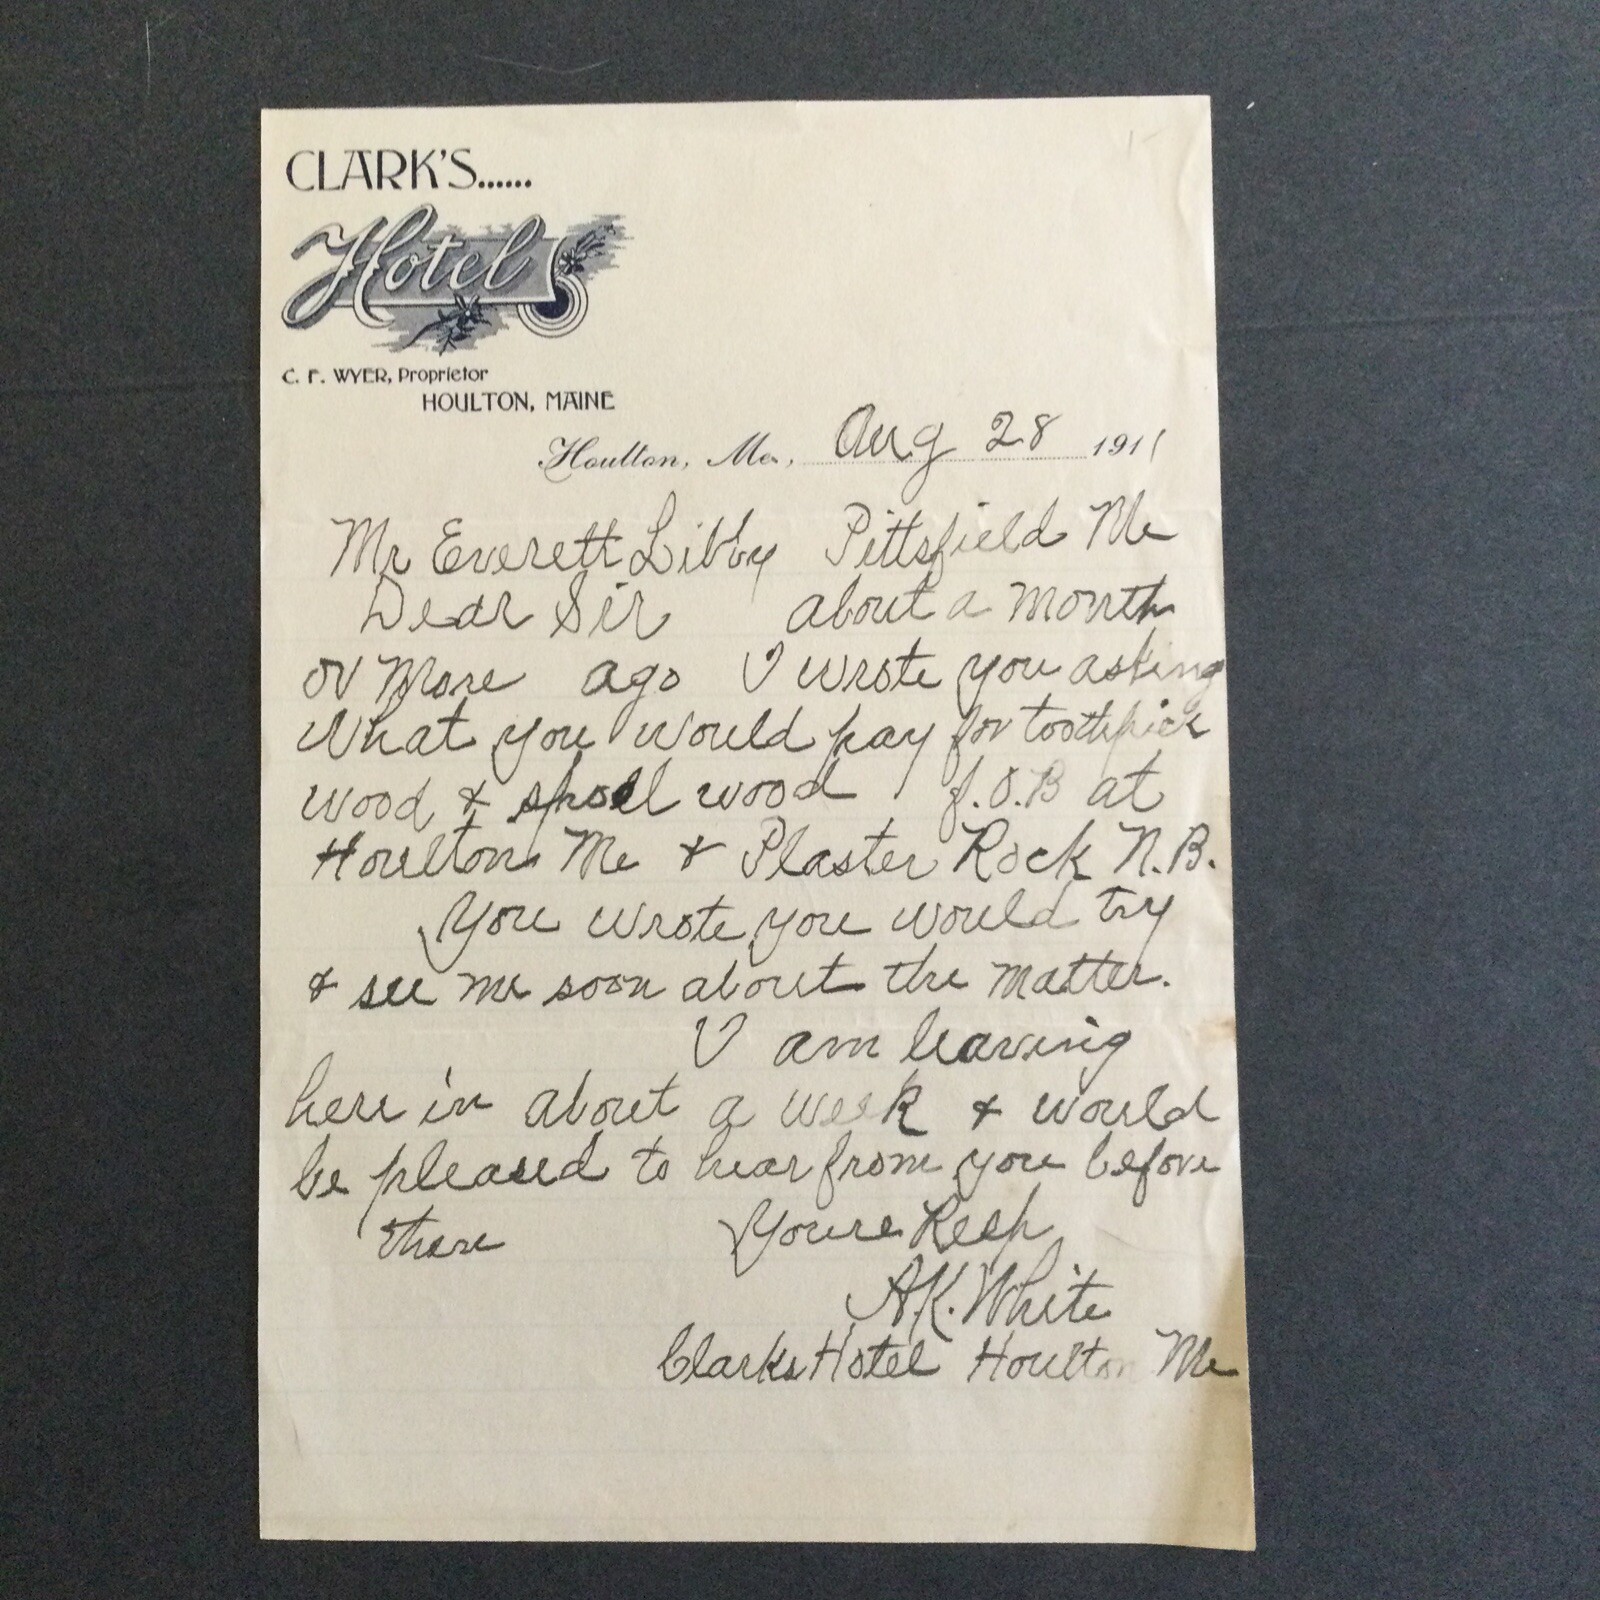 CLARK'S......
Hotel
C. F. WYER, Proprietor
HOULTON, MAINE
Houlton, Me., Aug 28 1911
Mr Everett Libby Pittsfield Me
Dear Sir about a month
or more ago I wrote you asking
What you would pay for toothpick
wood & spool wood f.O.B at
Houlton Me & Plaster Rock N.B.
You wrote you would try
& see me soon about the matter.
I am leaving
here in about a week & would
be pleased to hear from you before
then Yours Resp
A.K. White
Clarks Hotel Houlton Me